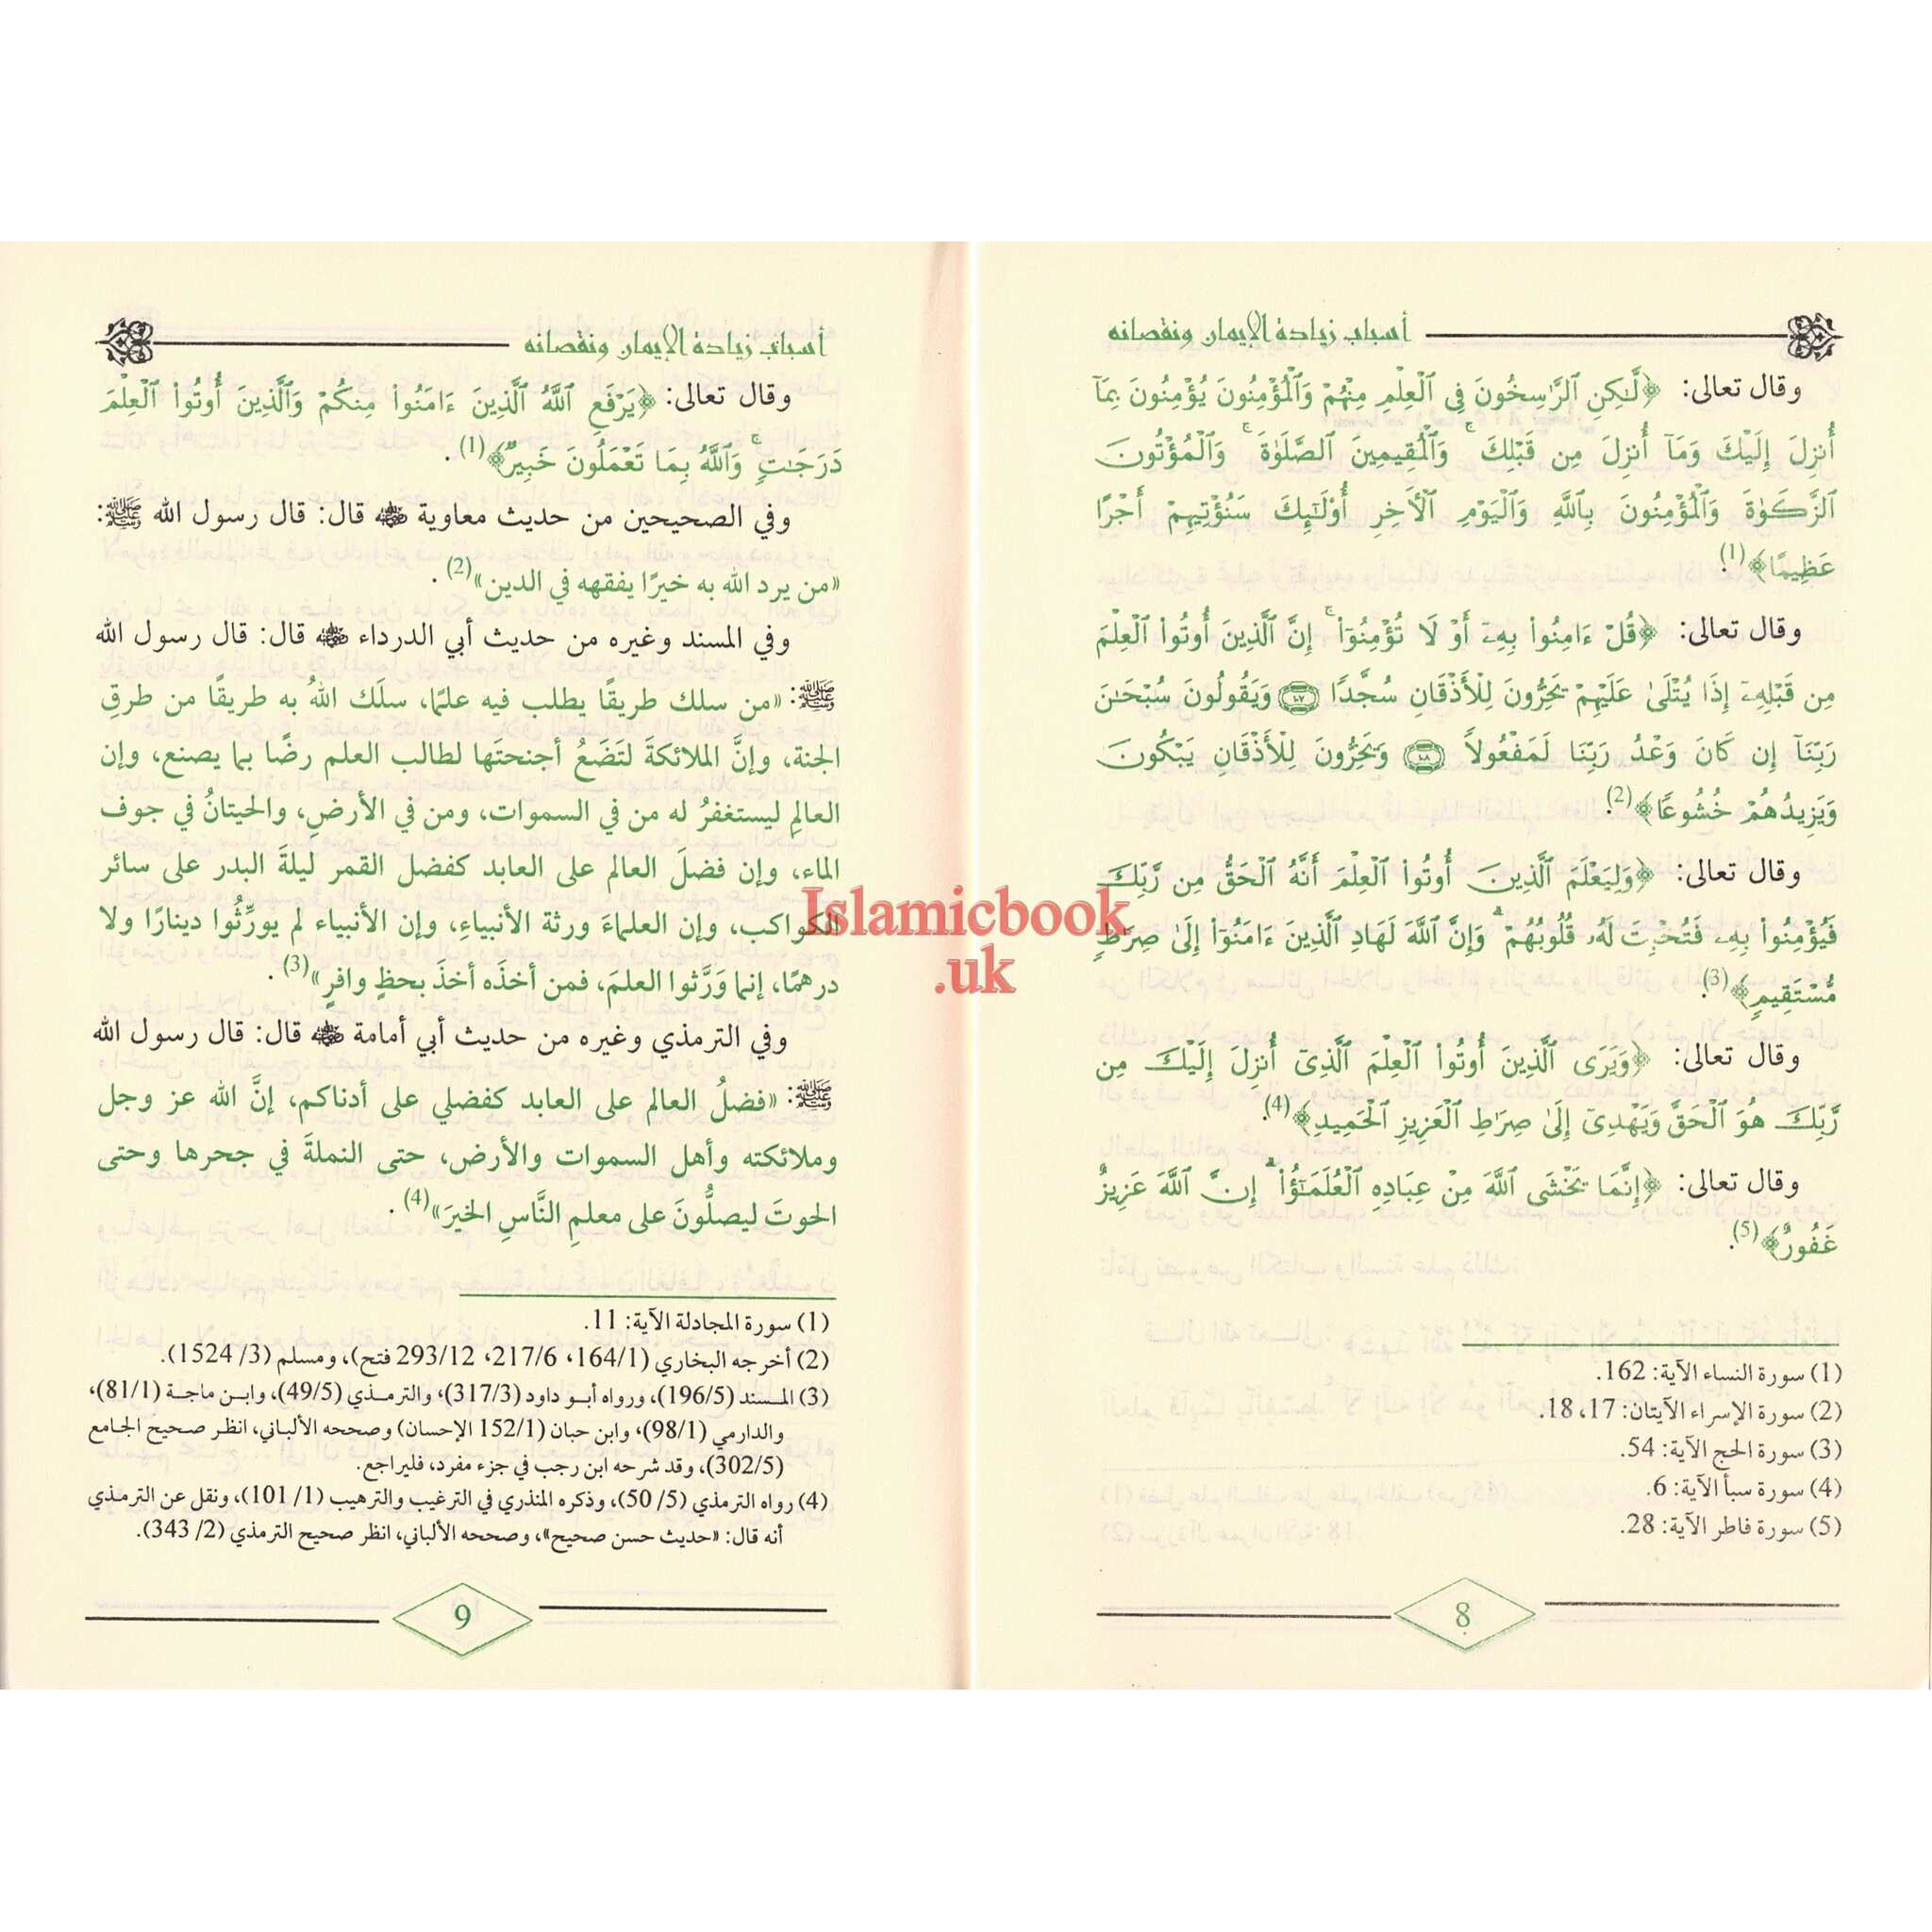 أسباب زيادة الإيمان ونقصانه
وقال تعالى: ﴿لَّٰكِنِ ٱلرَّٰسِخُونَ فِى ٱلْعِلْمِ مِنْهُمْ وَٱلْمُؤْمِنُونَ يُؤْمِنُونَ بِمَآ
أُنزِلَ إِلَيْكَ وَمَآ أُنزِلَ مِن قَبْلِكَ ۚ وَٱلْمُقِيمِينَ ٱلصَّلَوٰةَ ۚ وَٱلْمُؤْتُونَ
ٱلزَّكَوٰةَ وَٱلْمُؤْمِنُونَ بِٱللَّهِ وَٱلْيَوْمِ ٱلْأَخِرِ أُو۟لَٰٓئِكَ سَنُؤْتِيهِمْ أَجْرًا
عَظِيمًا﴾(1).
وقال تعالى: ﴿قُلْ ءَامِنُوا۟ بِهِۦٓ أَوْ لَا تُؤْمِنُوٓا۟ ۚ إِنَّ ٱلَّذِينَ أُوتُوا۟ ٱلْعِلْمَ
مِن قَبْلِهِۦٓ إِذَا يُتْلَىٰ عَلَيْهِمْ يَخِرُّونَ لِلْأَذْقَانِ سُجَّدًا ١٠٧ وَيَقُولُونَ سُبْحَٰنَ
رَبِّنَآ إِن كَانَ وَعْدُ رَبِّنَا لَمَفْعُولًا ١٠٨ وَيَخِرُّونَ لِلْأَذْقَانِ يَبْكُونَ
وَيَزِيدُهُمْ خُشُوعًا﴾(2).
وقال تعالى: ﴿وَلِيَعْلَمَ ٱلَّذِينَ أُوتُوا۟ ٱلْعِلْمَ أَنَّهُ ٱلْحَقُّ مِن رَّبِّكَ
فَيُؤْمِنُوا۟ بِهِۦ فَتُخْبِتَ لَهُۥ قُلُوبُهُمْ ۗ وَإِنَّ ٱللَّهَ لَهَادِ ٱلَّذِينَ ءَامَنُوٓا۟ إِلَىٰ صِرَٰطٍ
مُّسْتَقِيمٍ﴾(3).
وقال تعالى: ﴿وَيَرَى ٱلَّذِينَ أُوتُوا۟ ٱلْعِلْمَ ٱلَّذِىٓ أُنزِلَ إِلَيْكَ مِن
رَّبِّكَ هُوَ ٱلْحَقَّ وَيَهْدِىٓ إِلَىٰ صِرَٰطِ ٱلْعَزِيزِ ٱلْحَمِيدِ﴾(4).
وقال تعالى: ﴿إِنَّمَا يَخْشَى ٱللَّهَ مِنْ عِبَادِهِ ٱلْعُلَمَٰٓؤُا۟ ۗ إِنَّ ٱللَّهَ عَزِيزٌ
غَفُورٌ﴾(5).
(1) سورة النساء الآية: 162.
(2) سورة الإسراء الآيتان: 17، 18.
(3) سورة الحج الآية: 54.
(4) سورة سبأ الآية: 6.
(5) سورة فاطر الآية: 28.
8
أسباب زيادة الإيمان ونقصانه
وقال تعالى: ﴿يَرْفَعِ ٱللَّهُ ٱلَّذِينَ ءَامَنُوا۟ مِنكُمْ وَٱلَّذِينَ أُوتُوا۟ ٱلْعِلْمَ
دَرَجَٰتٍ ۚ وَٱللَّهُ بِمَا تَعْمَلُونَ خَبِيرٌ﴾(1).
وفي الصحيحين من حديث معاوية رضي الله عنه قال: قال رسول الله ﷺ:
«من يرد الله به خيرًا يفقهه في الدين»(2).
وفي المسند وغيره من حديث أبي الدرداء رضي الله عنه قال: قال رسول الله
ﷺ: «من سلك طريقًا يطلب فيه علمًا، سلَك اللهُ به طريقًا من طرقِ
الجنة، وإنَّ الملائكةَ لتَضَعُ أجنحتَها لطالب العلم رضًا بما يصنع، وإن
العالمِ ليستغفرُ له من في السموات، ومن في الأرضِ، والحيتانُ في جوف
الماء، وإن فضلَ العالم على العابد كفضل القمر ليلةَ البدر على سائر
الكواكب، وإن العلماءَ ورثة الأنبياءِ، وإن الأنبياء لم يورِّثُوا دينارًا ولا
درهمًا، إنما وَرَّثوا العلمَ، فمن أخذَه أخذَ بحظٍ وافرٍ»(3).
وفي الترمذي وغيره من حديث أبي أمامة رضي الله عنه قال: قال رسول الله
ﷺ: «فضلُ العالم على العابد كفضلي على أدناكم، إنَّ الله عز وجل
وملائكته وأهل السموات والأرض، حتى النملةَ في جحرها وحتى
الحوتَ ليصلُّونَ على معلمِ النَّاسِ الخيرَ»(4).
(1) سورة المجادلة الآية: 11.
(2) أخرجه البخاري (164/1، 217/6، 293/12 فتح)، ومسلم (3/ 1524).
(3) المسند (196/5)، ورواه أبو داود (317/3)، والترمذي (49/5)، وابن ماجة (81/1)،
والدارمي (98/1)، وابن حبان (152/1 الإحسان) وصححه الألباني، انظر صحيح الجامع
(302/5)، وقد شرحه ابن رجب في جزء مفرد، فليراجع.
(4) رواه الترمذي (5/ 50)، وذكره المنذري في الترغيب والترهيب (1/ 101)، ونقل عن الترمذي
أنه قال: «حديث حسن صحيح»، وصححه الألباني، انظر صحيح الترمذي (2/ 343).
9
Islamicbook
.uk